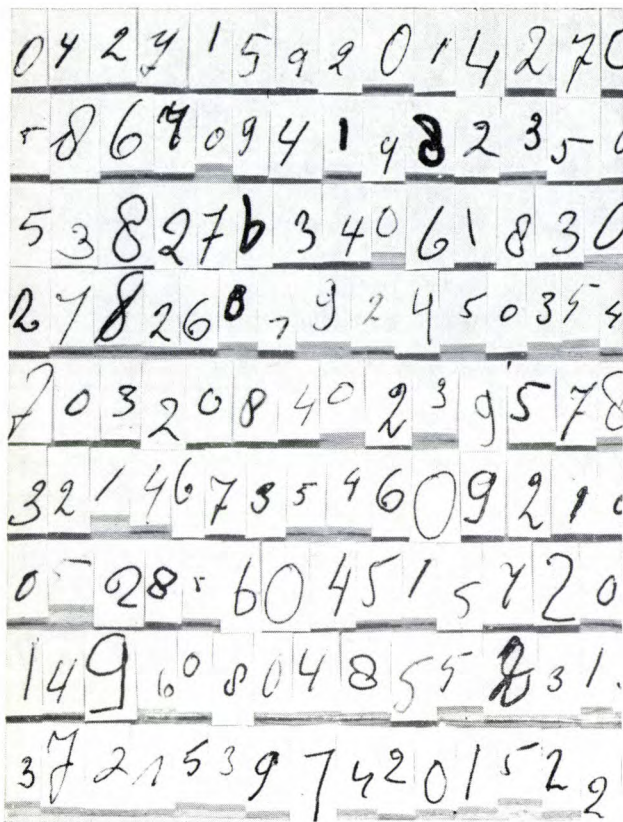 0 4 2 7 1 5 9 2 0 1 4 2 7 0
5 8 6 7 0 9 4 1 9 8 2 3 5 0
5 3 8 2 7 6 3 4 0 6 1 8 3 0
2 7 8 2 6 8 7 9 2 4 5 0 3 5 4
7 0 3 2 0 8 4 0 2 3 9 5 7 8
3 2 1 4 6 7 3 5 4 6 0 9 2 1 0
0 5 2 8 5 6 0 4 5 1 5 7 2 0
1 4 9 6 0 8 0 4 8 5 5 2 3 1
3 7 2 1 5 3 9 7 4 2 0 1 5 2 2